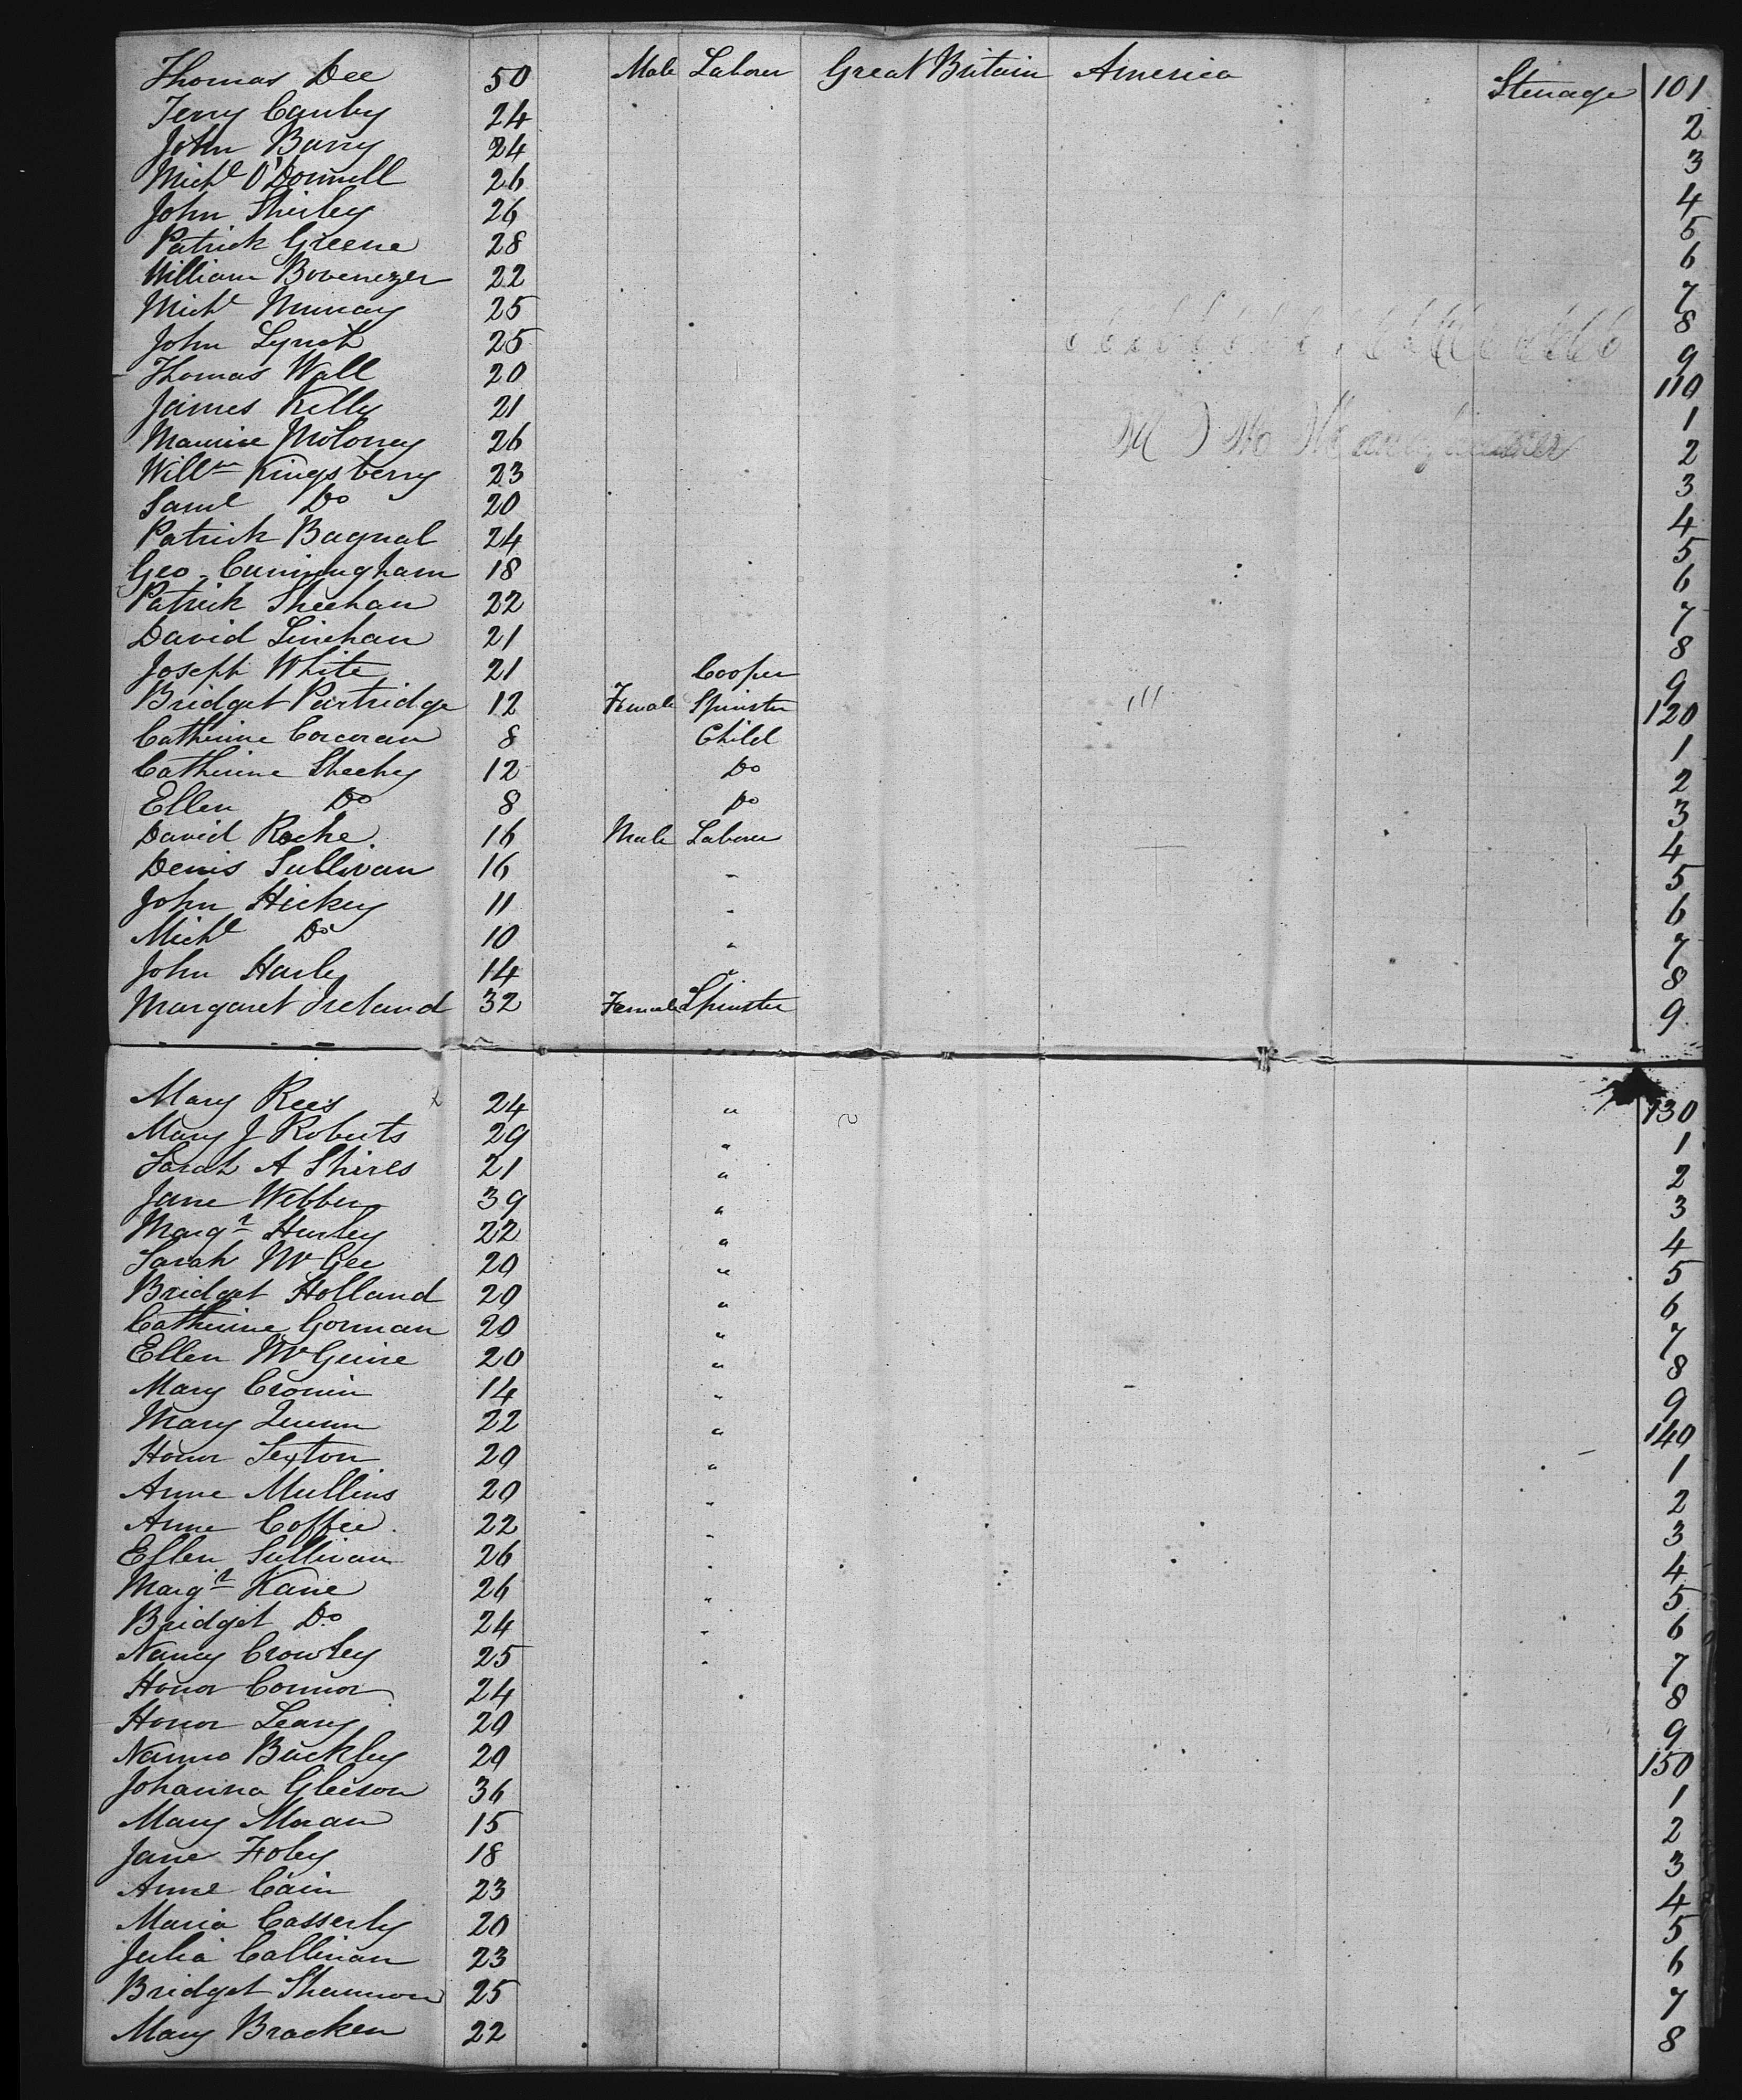 Thomas Dee 50 Male Laborer Great Britain America Steerage 101
Terry Canby 24 2
John Barry 24 3
Michl O'Donnell 26 4
John Shirley 26 5
Patrick Greene 28 6
William Bovenezer 22 7
Michl Murray 25 8
John Lynch 25 9
Thomas Wall 20 110
James Kelly 21 1
Maurice Moloney 26 2
Willm Kingsberry 23 3
Saml Do 20 4
Patrick Bagnal 24 5
Geo. Cunningham 18 6
Patrick Sheehan 22 7
David Linehan 21 8
Joseph White 21 Cooper 9
Bridget Partridge 12 Female Spinster 120
Catherine Corcoran 8 Child 1
Catherine Sheehy 12 Do 2
Ellen Do 8 Do 3
David Roche 16 Male Laborer 4
Denis Sullivan 16 " 5
John Hickey 11 " 6
Michl Do 10 " 7
John Harley 14 " 8
Margaret Ireland 32 Female Spinster 9
Mary Rees 24 " 130
Mary J Roberts 29 " 1
Sarah A Shires 21 " 2
Jane Webber 39 " 3
Margt Hurley 22 " 4
Sarah McGee 20 " 5
Bridget Holland 20 " 6
Catherine Gorman 20 " 7
Ellen McGuire 20 " 8
Mary Cronin 14 " 9
Mary Quinn 22 " 140
Honor Sexton 20 " 1
Anne Mullins 20 " 2
Anne Coffee 22 " 3
Ellen Sullivan 26 " 4
Margt Kane 26 " 5
Bridget Do 24 " 6
Nancy Crowley 25 " 7
Honor Connor 24 8
Honor Leary 20 9
Nanno Buckley 20 150
Johanna Gleeson 36 1
Mary Moran 15 2
Jane Foley 18 3
Anne Cain 23 4
Maria Casserly 20 5
Julia Callinan 23 6
Bridget Shannon 25 7
Mary Bracken 22 8